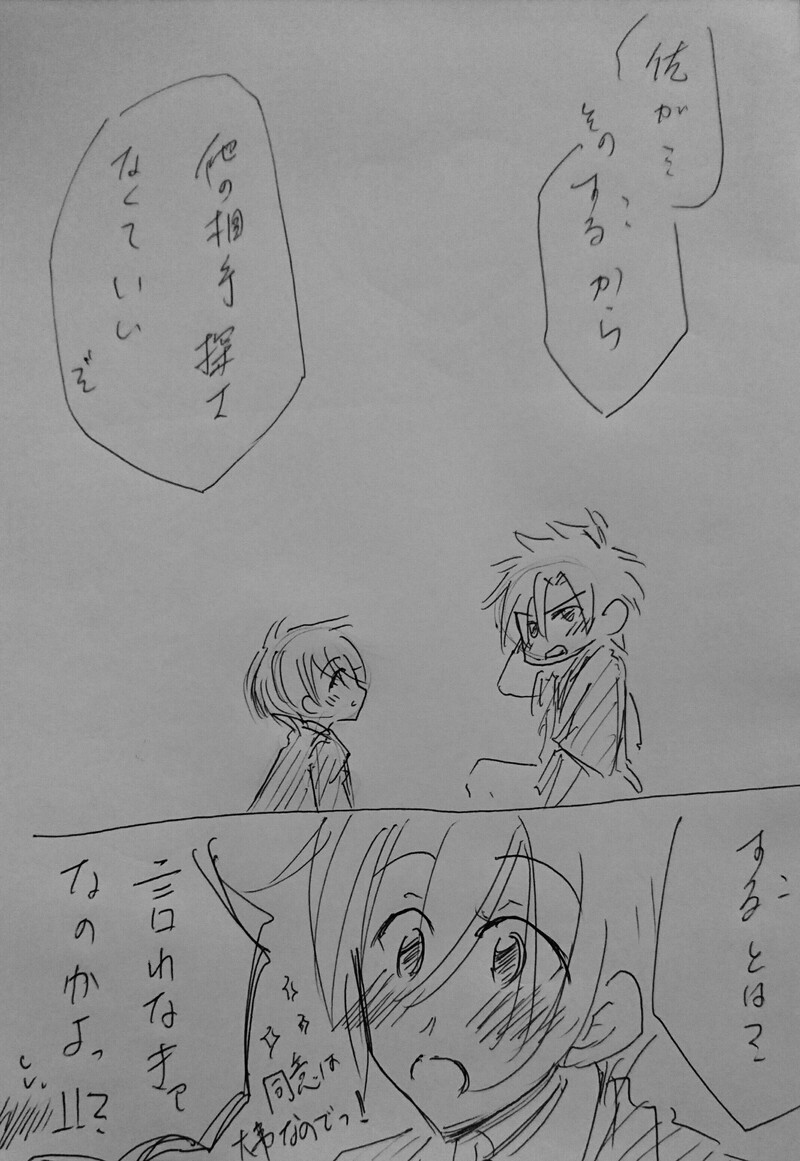 俺が…
その
するから
他の相手探さ
なくていい
ぞ
するとは…
言わなきゃ
なのかよっ
同意は
大事なのでっ!